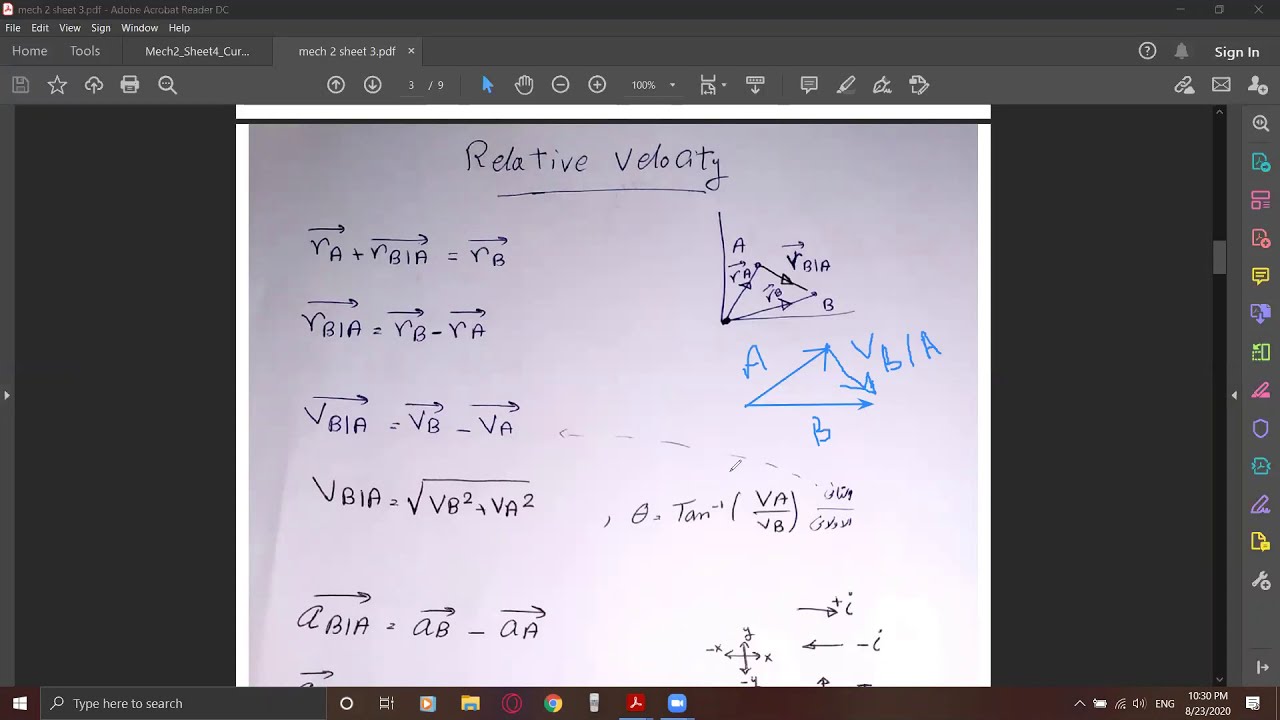 mech 2 sheet 3.pdf - Adobe Acrobat Reader DC
File Edit View Sign Window Help
Home Tools Mech2_Sheet4_Cur... mech 2 sheet 3.pdf × Sign In
3 / 9 100%
Relative Velocity
r⃗A + r⃗B|A = r⃗B
r⃗B|A = r⃗B - r⃗A
A r⃗A r⃗B|A r⃗B B
A VB/A
B
V⃗B|A = V⃗B - V⃗A
VB|A = √VB² + VA² , θ = Tan⁻¹ (VA/VB)
a⃗B|A = a⃗B - a⃗A
+i
-i
y
-x x
-y
Type here to search
ENG 10:30 PM
8/23/2020